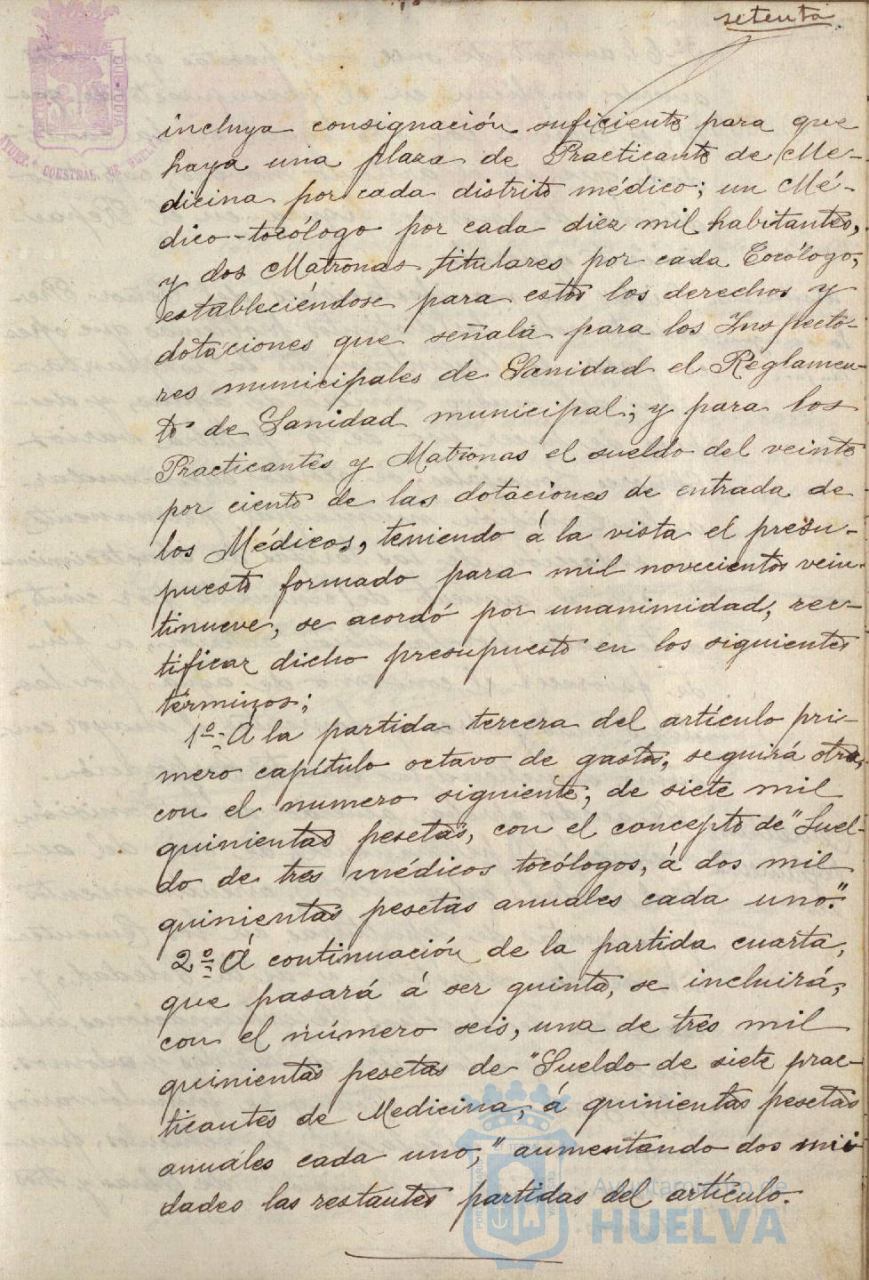 setenta
incluya consignación suficiente para que
haya una plaza de Practicante de Me-
dicina por cada distrito médico; un Mé-
dico-tocólogo por cada diez mil habitantes,
y dos Matronas titulares por cada Tocólogo,
estableciéndose para estos los derechos y
dotaciones que señala para los Inspecto-
res municipales de Sanidad el Reglamen-
to de Sanidad municipal; y para los
Practicantes y Matronas el sueldo del veinte
por ciento de las dotaciones de entrada de
los Médicos, teniendo á la vista el presu-
puesto formado para mil novecientos vein-
tinueve, se acordó por unanimidad, rec-
tificar dicho presupuesto en los siguientes
términos;
1º- A la partida tercera del artículo pri-
mero capítulo octavo de gastos, seguirá otra,
con el numero siguiente, de siete mil
quinientas pesetas, con el concepto de "Suel-
do de tres médicos tocólogos, á dos mil
quinientas pesetas anuales cada uno."
2º- Á continuación de la partida cuarta,
que pasará á ser quinta, se incluirá,
con el número seis, una de tres mil
quinientas pesetas de "Sueldo de siete prac-
ticantes de Medicina, á quinientas pesetas
anuales cada uno," aumentando dos uni
dades las restantes partidas del artículo.
Ayuntamiento de
HUELVA